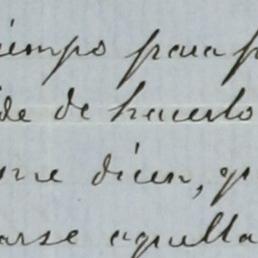 iempo para p
de de hacerlo
me dicen, q
arse aquella